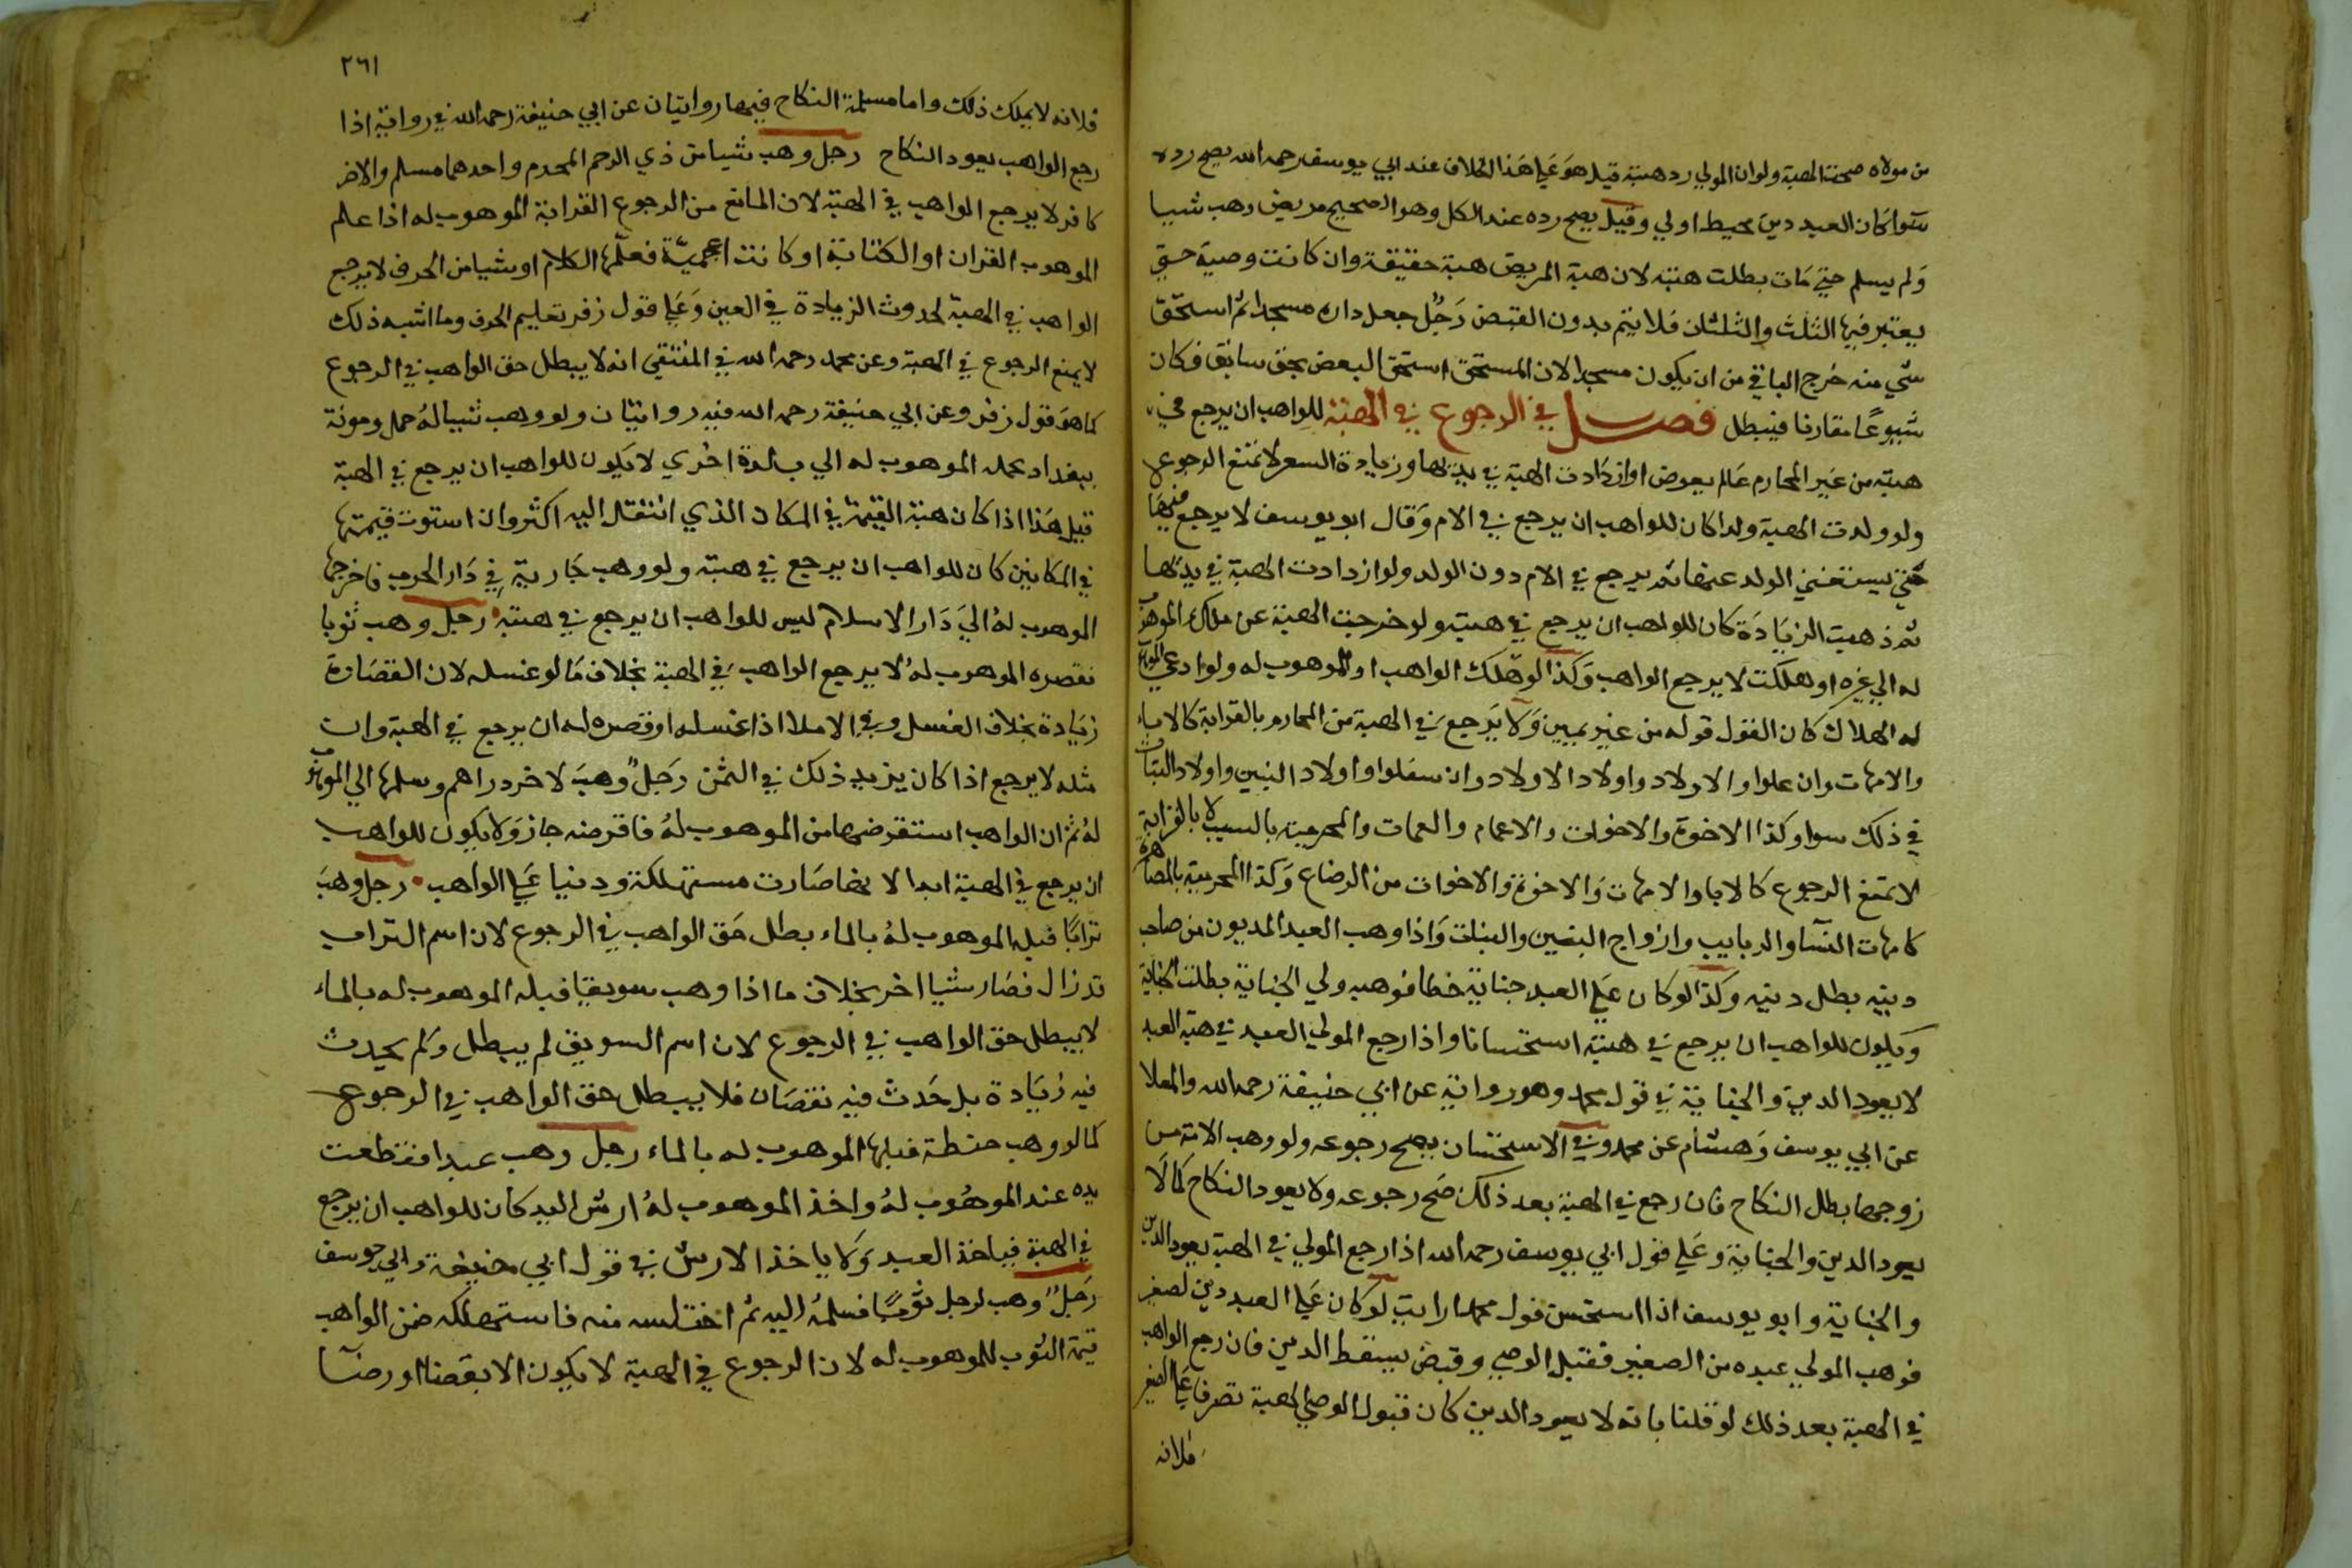 من مولاه صحت الهبة ولو ان المولي رد هبته قيل هو علي هذا الخلاف عند ابي يوسف رحمه الله يصح رده
سوا كان العبد دين محيط اولي وقيل يصح رده عند الكل وهو الصحيح مريض وهب شيا
ولم يسلم حتي مات بطلت هبته لان هبة المريض هبة حقيقة وان كانت وصية حتي
يعتبر فيها الثلث والثلثان فلا يتم بدون القبض رجل جعل داره مسجدا ثم استحق
شي منه خرج الباقي من ان يكون مسجدا لان المستحق استحق البعض بحق سابق فكان
شيوعا مقارنا فيبطل فصل في الرجوع في الهبة للواهب ان يرجع في
هبته من غير المحارم مالم يعوض او ازدادت الهبة في بدنها وزيادة السعر لا تمنع الرجوع
ولو ولدت الهبة ولدا كان للواهب ان يرجع في الام وقال ابو يوسف لا يرجع فيها
حتي يستغني الولد عنها ثم يرجع في الام دون الولد ولو ازدادت الهبة في بدنها
ثم ذهبت الزيادة كان للواهب ان يرجع في هبته ولو خرجت الهبة عن ملك الموهوب
له الي غيره او هلكت لا يرجع الواهب وكذا لو هلك الواهب او الموهوب له ولو ادعي الموهوب
له الهلاك كان القول قوله من غير يمين ولا يرجع في الهبة من المحارم بالقرابة كالاباء
والامهات وان علوا والاولاد واولاد الاولاد وان سفلوا واولاد البنين واولاد البنات
في ذلك سوا وكذا الاخوة والاخوات والاعمام والعمات والمحرمية بالسبب لا بالقرابة
لا تمنع الرجوع كالابا والامهات والاخوة والاخوات من الرضاع وكذا المحرمية بالمصاهرة
كامهات النسا والربايب وازواج البنين والبنات واذا وهب العبد المديون من صاحب
دينه بطل دينه وكذا لو كان علي العبد جناية خطا فوهبه ولي الجناية بطلت الجناية
ويكون للواهب ان يرجع في هبته استحسانا واذا رجع المولي العبد في هبة العبد
لا يعود الدين والجناية في قول محمد وهو رواية عن ابي حنيفة رحمه الله والمعلا
عن ابي يوسف وهشام عن محمد وفي الاستحسان يصح رجوعه ولو وهب الامة من
زوجها بطل النكاح فان رجع في الهبة بعد ذلك صح رجوعه ولا يعود النكاح كما لا
يعود الدين والجناية وعلي قول ابي يوسف رحمه الله اذا رجع المولي في الهبة يعود الدين
والجناية وابو يوسف اذا استحسن قول محمد ارايت لو كان علي العبد دين لصغير
فوهب المولي عبده من الصغير فقبل الوصي وقبض يسقط الدين فان رجع الواهب
في الهبة بعد ذلك لو قلنا بانه لا يعود الدين كان قبول الوصي الهبة تصرفا علي الصغير
فلانه
٢٦١
فلانه لا يملك ذلك واما مسلة النكاح فيها روايتان عن ابي حنيفة رحمه الله في رواية اذا
رجع الواهب يعود النكاح رجل وهب شيا من ذي الرحم المحرم واحدهما مسلم والاخر
كافر لا يرجع الواهب في الهبة لان المانع من الرجوع القرابة الموهوب له اذا علم
الموهوب القران او الكتابة او كانت اعجمية فعلمها الكلام او شيا من الحرف لا يرجع
الواهب في الهبة لحدوث الزيادة في العين وعلي قول زفر تعليم الحرف وما اشبه ذلك
لا يمنع الرجوع في الهبة وعن محمد رحمه الله في المنتقي انه لا يبطل حق الواهب في الرجوع
كما هو قول زفر وعن ابي حنيفة رحمه الله فيه روايتان ولو وهب شيا له حمل ومونة
ببغداد فحمله الموهوب له الي بلدة اخري لا يكون للواهب ان يرجع في الهبة
قيل هذا اذا كان هبة القيمة في المكان الذي انتقل اليه اكثر وان استوت قيمتها
في المكانين كان للواهب ان يرجع في هبته ولو وهب جارية في دار الحرب فاخرجها
الموهوب له الي دار الاسلام ليس للواهب ان يرجع في هبته رجل وهب ثوبا
فقصره الموهوب له لا يرجع الواهب في الهبة بخلاف ما لو غسله لان القصارة
زيادة بخلاف الغسل وفي الاملا اذا غسله او قصره له ان يرجع في الهبة وان
مثله لا يرجع اذا كان يزيد ذلك في الثمن رجل وهب لاخر دراهم وسلمها الي الموهوب
له ثم ان الواهب استقرضها من الموهوب له فاقرضه جاز ولا يكون للواهب
ان يرجع في الهبة ابدا لانها صارت مستهلكة ودينا علي الواهب رجل وهب
ترابا فبله الموهوب له بالماء بطل حق الواهب في الرجوع لان اسم التراب
قد زال فصار شيا اخر بخلاف ما اذا وهب سويقا فبله الموهوب له بالماء
لا يبطل حق الواهب في الرجوع لان اسم السويق لم يبطل ولم يحدث
فيه زيادة بل حدث فيه نقصان فلا يبطل حق الواهب في الرجوع
كما لو وهب حنطة فبلها الموهوب له بالماء رجل وهب عبدا فقطعت
يده عند الموهوب له واخذ الموهوب له ارش اليد كان للواهب ان يرجع
في الهبة فياخذ العبد ولا ياخذ الارش في قول ابي حنيفة وابي يوسف
رجل وهب لرجل ثوبا فسلمه اليه ثم اختلسه منه فاستهلكه ضمن الواهب
قيمة الثوب للموهوب له لان الرجوع في الهبة لا يكون الا بقضا او رضا